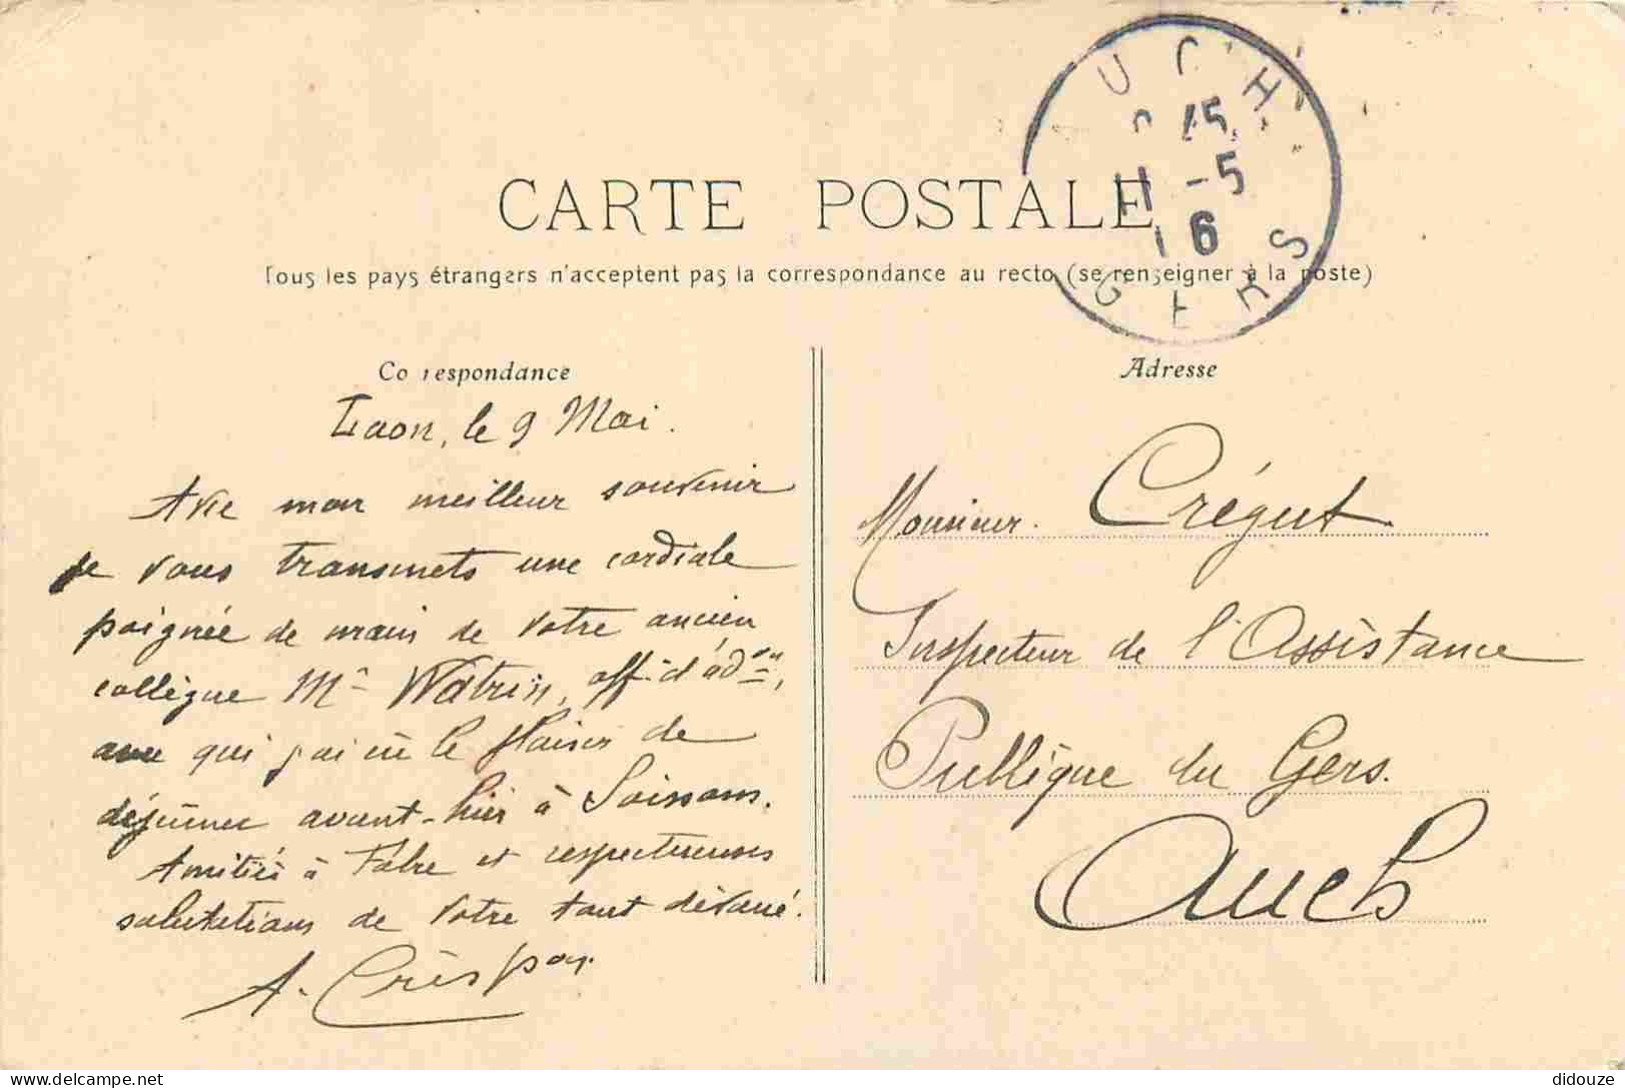 CARTE POSTALE
Tous les pays étrangers n'acceptent pas la correspondance au recto (se renseigner à la poste)
AUCH
11 -5
6
GERS
Correspondance
Laon, le 9 Mai.
Avec mon meilleur souvenir
je vous transmets une cordiale
poignée de main de votre ancien
collègue Mr Watrin, off. d'adon,
avec qui j'ai eu le plaisir de
déjeuner avant-hier à Soissons.
Amitiés à Fabre et respectueuses
salutations de votre tout dévoué.
A. Crespoy.
Adresse
Monsieur Crégut
Inspecteur de l'Assistance
Publique du Gers.
Auch
didouze